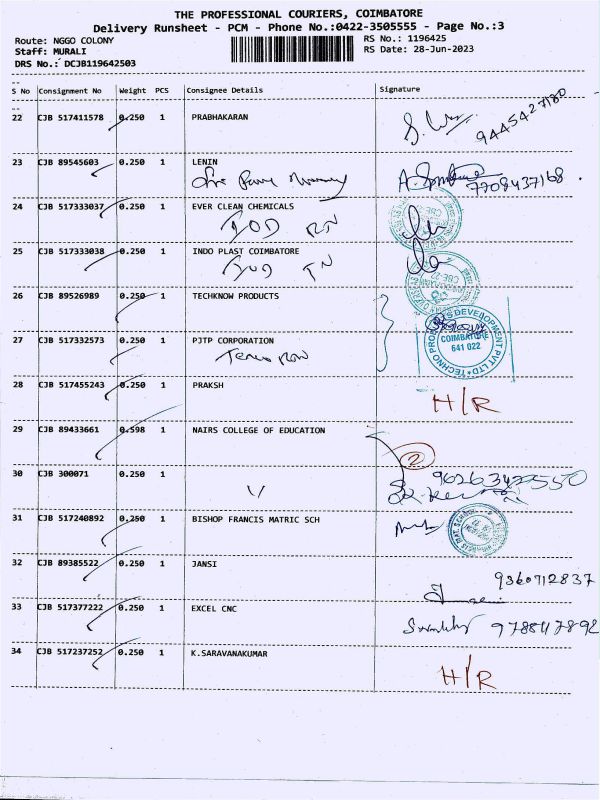 THE PROFESSIONAL COURIERS, COIMBATORE
Delivery Runsheet - PCM - Phone No.:0422-3505555 - Page No.:3
Route: NGGO COLONY RS No.: 1196425
Staff: MURALI RS Date: 28-Jun-2023
DRS No.: DCJB119642503
S No Consignment No Weight PCS Consignee Details Signature
22 CJB 517411578 0.250 1 PRABHAKARAN
9445427180
23 CJB 89545603 0.250 1 LENIN
7708437168
24 CJB 517333037 0.250 1 EVER CLEAN CHEMICALS
25 CJB 517333038 0.250 1 INDO PLAST COIMBATORE
26 CJB 89526989 0.250 1 TECHKNOW PRODUCTS
27 CJB 517332573 0.250 1 PJTP CORPORATION
COIMBATORE
641 022
28 CJB 517455243 0.250 1 PRAKSH
H/R
29 CJB 89433661 0.598 1 NAIRS COLLEGE OF EDUCATION
2
30 CJB 300071 0.250 1
31 CJB 517240892 0.250 1 BISHOP FRANCIS MATRIC SCH
32 CJB 89385522 0.250 1 JANSI
9360712837
33 CJB 517377222 0.250 1 EXCEL CNC
34 CJB 517237252 0.250 1 K.SARAVANAKUMAR
H/R